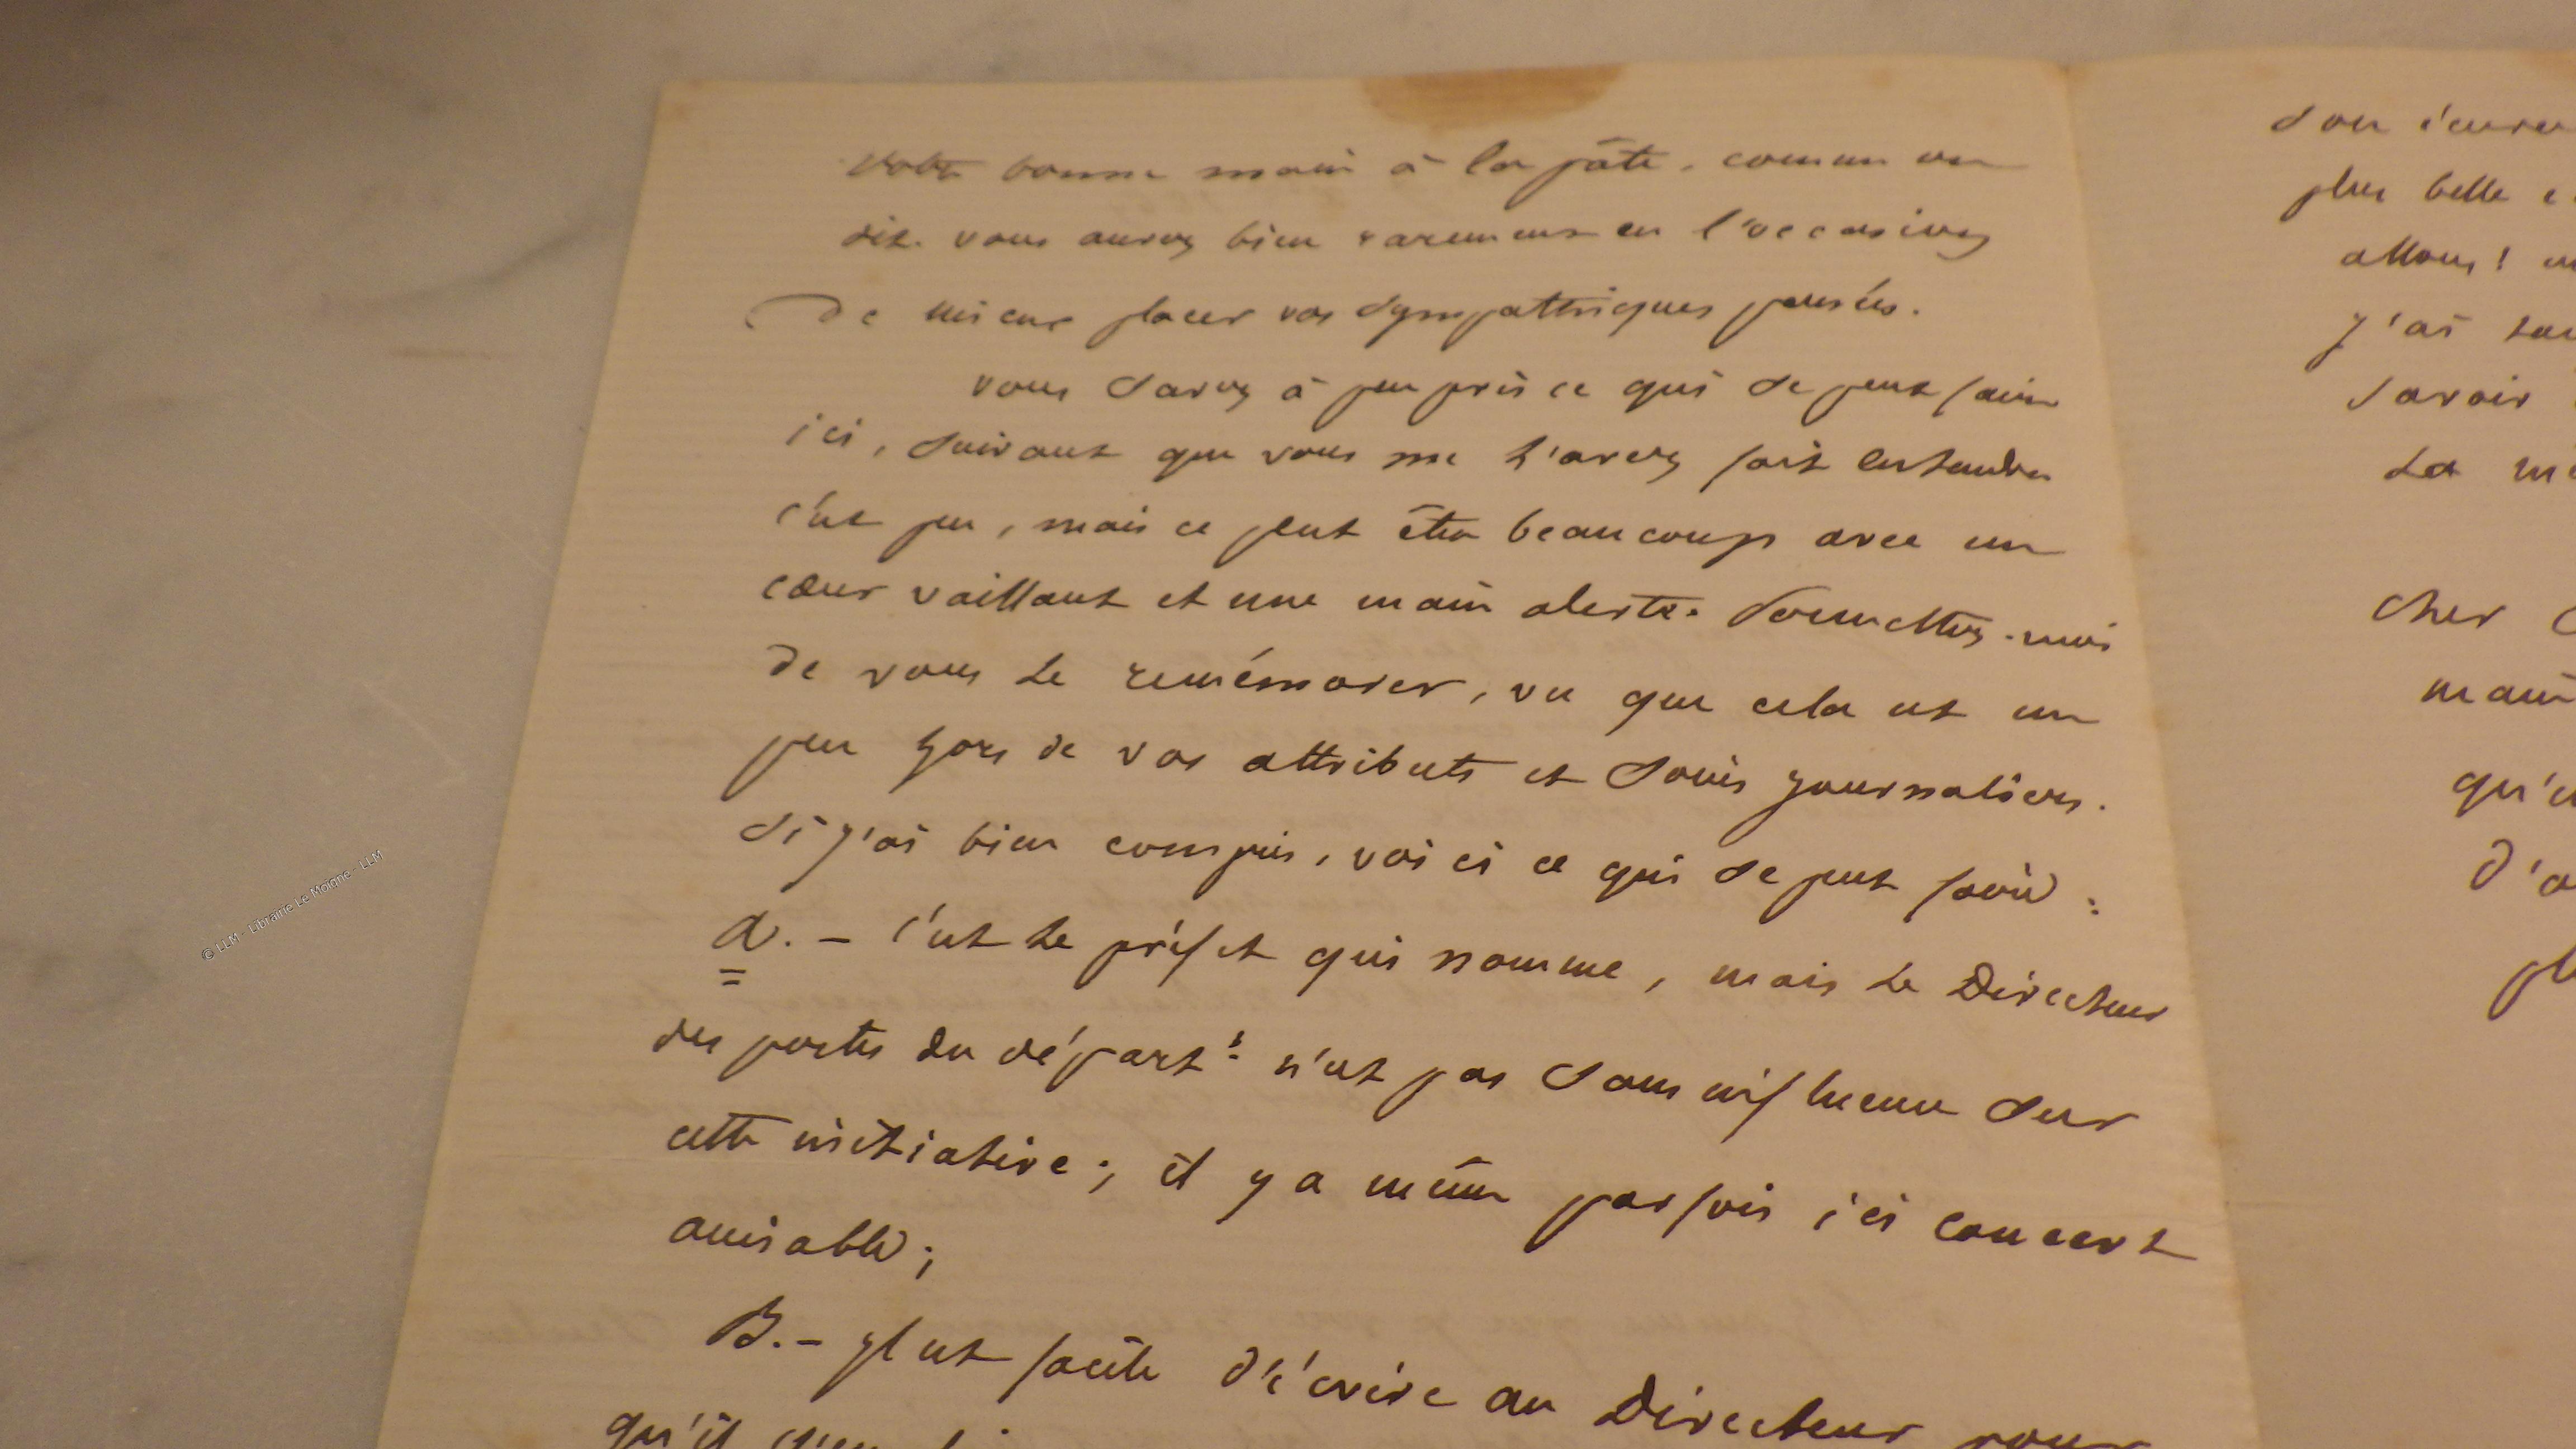 votre bonne main à la pâte, comme on
dit. vous aurez bien rarement eu l'occasion
de mieux placer vos sympathiques pensées.
vous savez à peu près ce qui se peut faire
ici, suivant que vous me l'avez fait entendre
c'est peu, mais ce peut être beaucoup avec un
cœur vaillant et une main alerte. Permettez-moi
de vous le remémorer, vu que cela est un
peu hors de vos attributs et soins journaliers.
si j'ai bien compris, voici ce qui se peut faire :
A. – c'est le préfet qui nomme, mais le Directeur
des postes du départt n'est pas sans influence sur
cette initiative ; il y a même parfois ici concert
amiable ;
B. – Il est facile d'écrire au Directeur pour
qu'il
plus belle
allons !
j'ai
savoir
La
cher
main
d'a
© LLM - Librairie Le Moigne - LLM